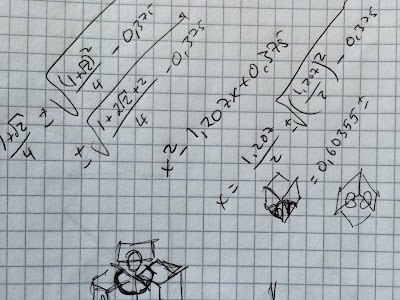 1+√2/4 ± √((1+√2)²/4 - 0,375
± √(1+2√2+2/4 - 0,375
x² - 1,207x + 0,375
x = 1,207/2 ± √(1,207/2)² - 0,375
= 0,60355 ±